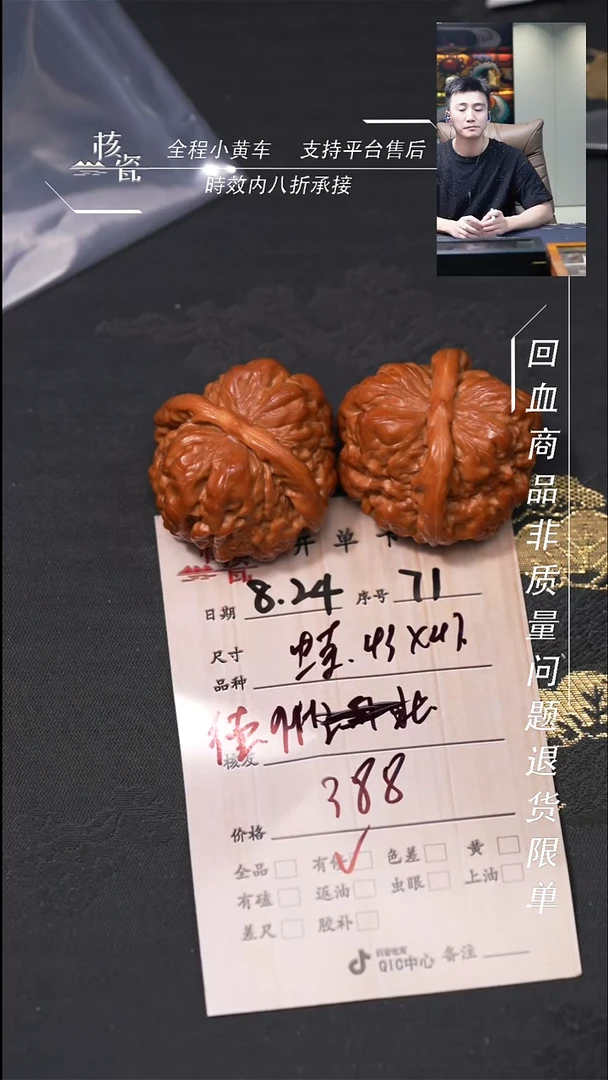 核瓷
全程小黄车 支持平台售后
時效内八折承接
回血商品非质量问题退货限单
开单卡
日期 8.24 序号 71
尺寸 蛙. 43X47
品种
核友
388
价格
全品 有修 色差 黄
有磕 返油 虫眼 上油
差尺 胶补
QIC中心 备注